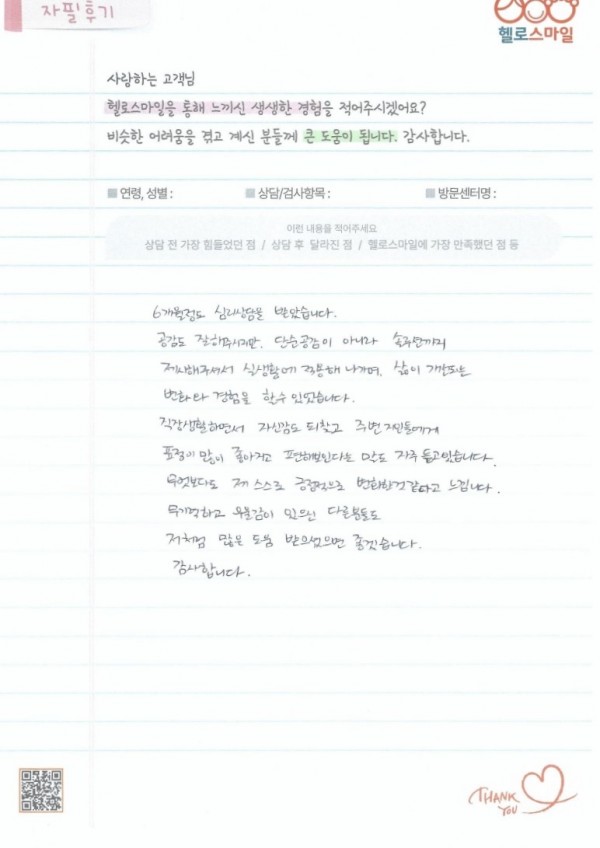 자필후기
헬로스마일
사랑하는 고객님
헬로스마일을 통해 느끼신 생생한 경험을 적어주시겠어요?
비슷한 어려움을 겪고 계신 분들께 큰 도움이 됩니다. 감사합니다.
연령, 성별 : 상담/검사항목 : 방문센터명 :
이런 내용을 적어주세요
상담 전 가장 힘들었던 점 / 상담 후 달라진 점 / 헬로스마일에 가장 만족했던 점 등
6개월정도 심리상담을 받았습니다.
공감도 잘해주시지만, 단순공감이 아니라 솔루션까지
제시해주셔서 실생활에 적용해 나가며, 삶이 개선되는
변화와 경험을 할수 있었습니다.
직장생활하면서 자신감도 되찾고 주변 지인들에게
표정이 많이 좋아지고 편해보인다는 말도 자주 듣고있습니다.
무엇보다도 제 스스로 긍정적으로 변화한것같다고 느낍니다.
무기력하고 우울감이 있으신 다른분들도
저처럼 많은 도움 받으셨으면 좋겠습니다.
감사합니다.
THANK
YOU